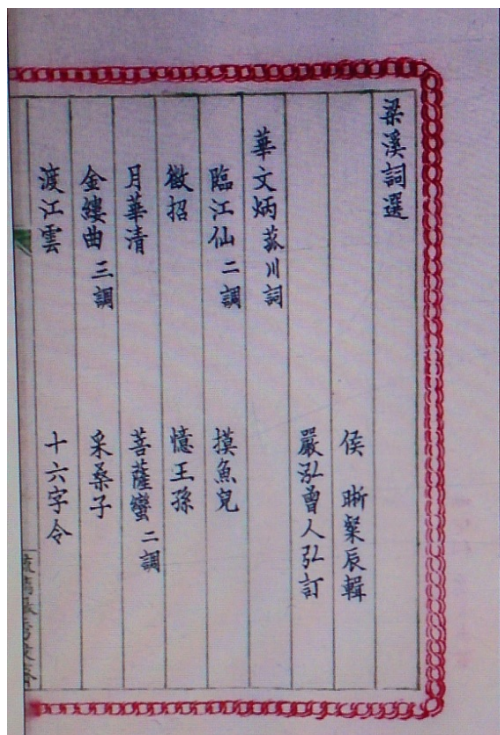 梁溪詞選
侯 晰粲辰輯
嚴泓曾人弘訂
華文炳菰川詞
臨江仙二調 摸魚兒
徵招 憶王孫
月華清 菩薩蠻二調
金縷曲三調 采桑子
渡江雲 十六字令